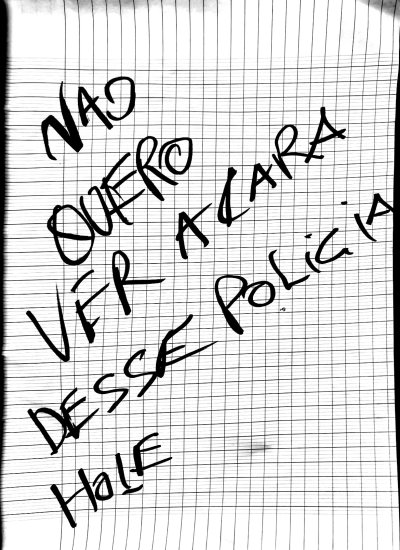 NAO
QUERO
VER A CARA
DESSE POLICIA
HOLE